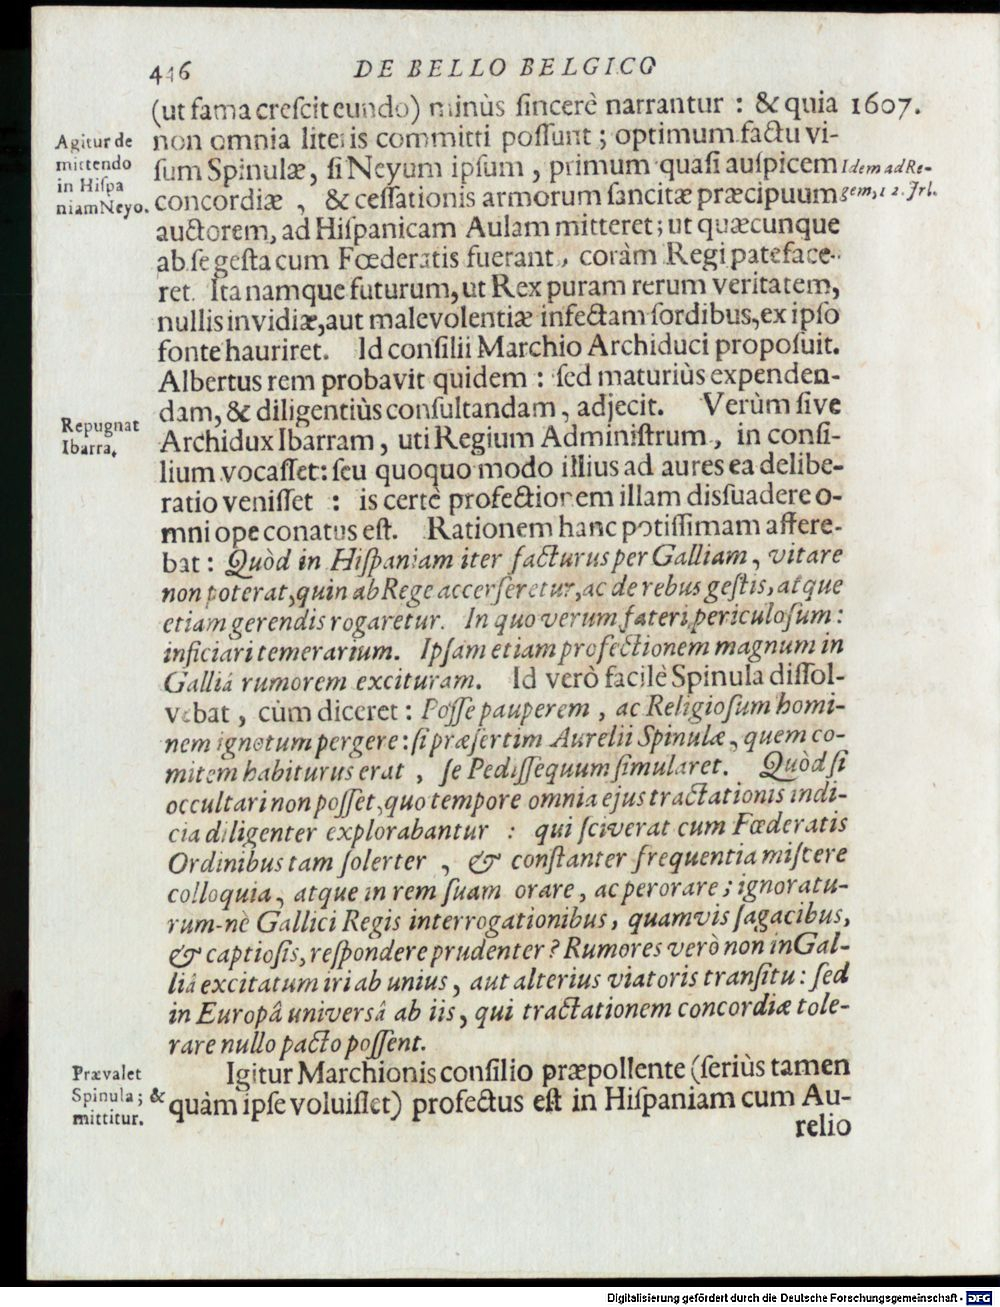 446 DE BELLO BELGICO
(ut fama creſcit eundo) minùs ſincerè narrantur : & quia 1607.
non omnia literis committi poſſunt ; optimum factu vi-
ſum Spinulæ, ſi Neyum ipſum , primum quaſi auſpicem
concordiæ , & ceſſationis armorum ſancitæ præcipuum
auctorem, ad Hiſpanicam Aulam mitteret ; ut quæcunque
ab ſe geſta cum Fœderatis fuerant , coràm Regi pateface-
ret. Ita namque futurum, ut Rex puram rerum veritatem,
nullis invidiæ, aut malevolentiæ infectam ſordibus, ex ipſo
fonte hauriret. Id conſilii Marchio Archiduci propoſuit.
Albertus rem probavit quidem : ſed maturiùs expenden-
dam, & diligentiùs conſultandam , adjecit. Verùm ſive
Archidux Ibarram , uti Regium Adminiſtrum , in conſi-
lium vocaſſet: ſeu quoquo modo illius ad aures ea delibe-
ratio veniſſet : is certè profectionem illam dissuadere o-
mni ope conatus eſt. Rationem hanc potiſſimam affere-
bat : Quòd in Hiſpaniam iter facturus per Galliam , vitare
non poterat, quin ab Rege accerſeretur, ac de rebus geſtis, atque
etiam gerendis rogaretur. In quo verum fateri, periculoſum :
inficiari temerarium. Ipſam etiam profectionem magnum in
Galliâ rumorem excituram. Id verò facilè Spinula diſſol-
vebat , cùm diceret : Poſſe pauperem , ac Religioſum homi-
nem ignotum pergere : ſi præſertim Aurelii Spinulæ , quem co-
mitem habiturus erat , ſe Pediſſequum ſimularet. Quòd ſi
occultari non poſſet, quo tempore omnia ejus tractationis indi-
cia diligenter explorabantur : qui ſciverat cum Fœderatis
Ordinibus tam ſolerter , & conſtanter frequentia miſcere
colloquia , atque in rem ſuam orare , ac perorare ; ignoratu-
rum-nè Gallici Regis interrogationibus , quamvis ſagacibus,
& captioſis, reſpondere prudenter ? Rumores verò non in Gal-
liâ excitatum iri ab unius , aut alterius viatoris tranſitu : ſed
in Europâ universâ ab iis , qui tractationem concordiæ tole-
rare nullo pacto poſſent.
Igitur Marchionis conſilio præpollente (ſeriùs tamen
quàm ipſe voluiſſet) profectus eſt in Hiſpaniam cum Au-
relio
Agitur de
mittendo
in Hiſpa
niam Neyo.
Idem ad Re-
gem, 12. Jul.
Repugnat
Ibarra.
Prævalet
Spinula ; &
mittitur.
Digitalisierung gefördert durch die Deutsche Forschungsgemeinschaft - DFG